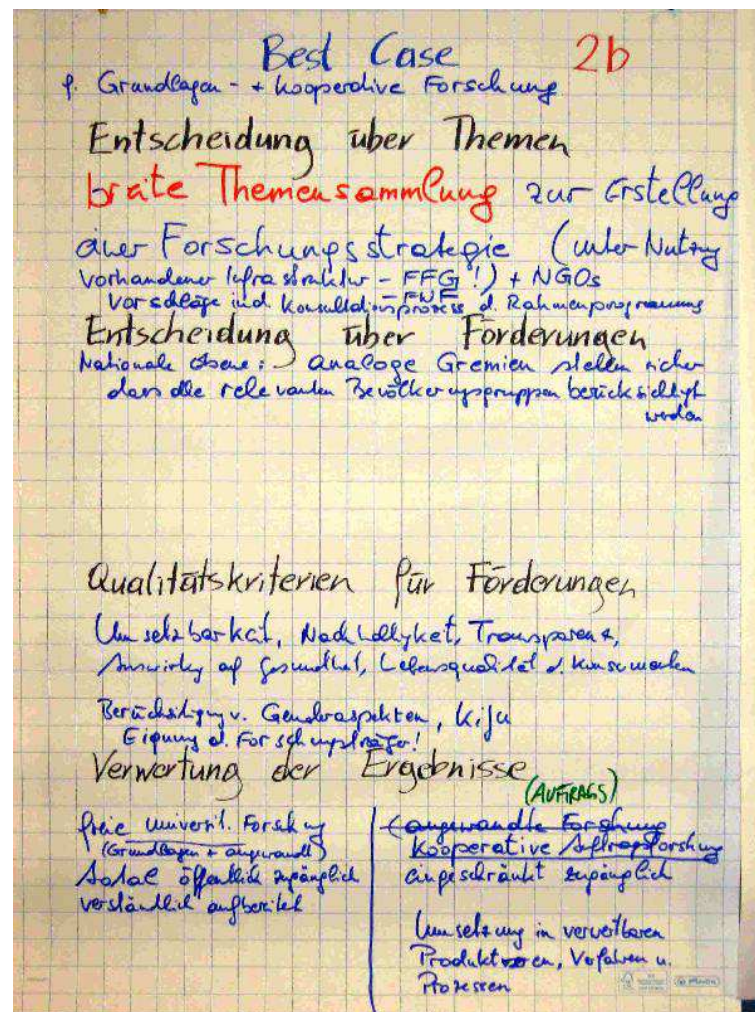 Best Case 2b
f. Grundlagen- + kooperative Forschung
Entscheidung über Themen
breite Themensammlung zur Erstellung
einer Forschungsstrategie (unter Nutzung
vorhandener Infrastruktur - FFG!) + NGOs
- FWF
Vorschläge incl. Konsultationsprozess d. Rahmenprogramms
Entscheidung über Förderungen
Nationale Ebene: analoge Gremien stellen sicher
dass alle relevanten Bevölkerungsgruppen berücksichtigt
werden
Qualitätskriterien für Förderungen
Umsetzbarkeit, Nachhaltigkeit, Transparenz,
Auswirkg auf Gesundheit, Lebensqualität d. Konsumenten
Berücksichtigung v. Genderaspekten, KiJu
Eignung d. Forschungsträger!
Verwertung der Ergebnisse
(AUFTRAGS)
freie universit. Forschung
(Grundlagen + angewandt)
total öffentlich zugänglich
verständlich aufbereitet
(angewandte Forschung
Kooperative Auftragsforschung
eingeschränkt zugänglich
Umsetzung in verwertbaren
Produkten, Verfahren u.
Prozessen